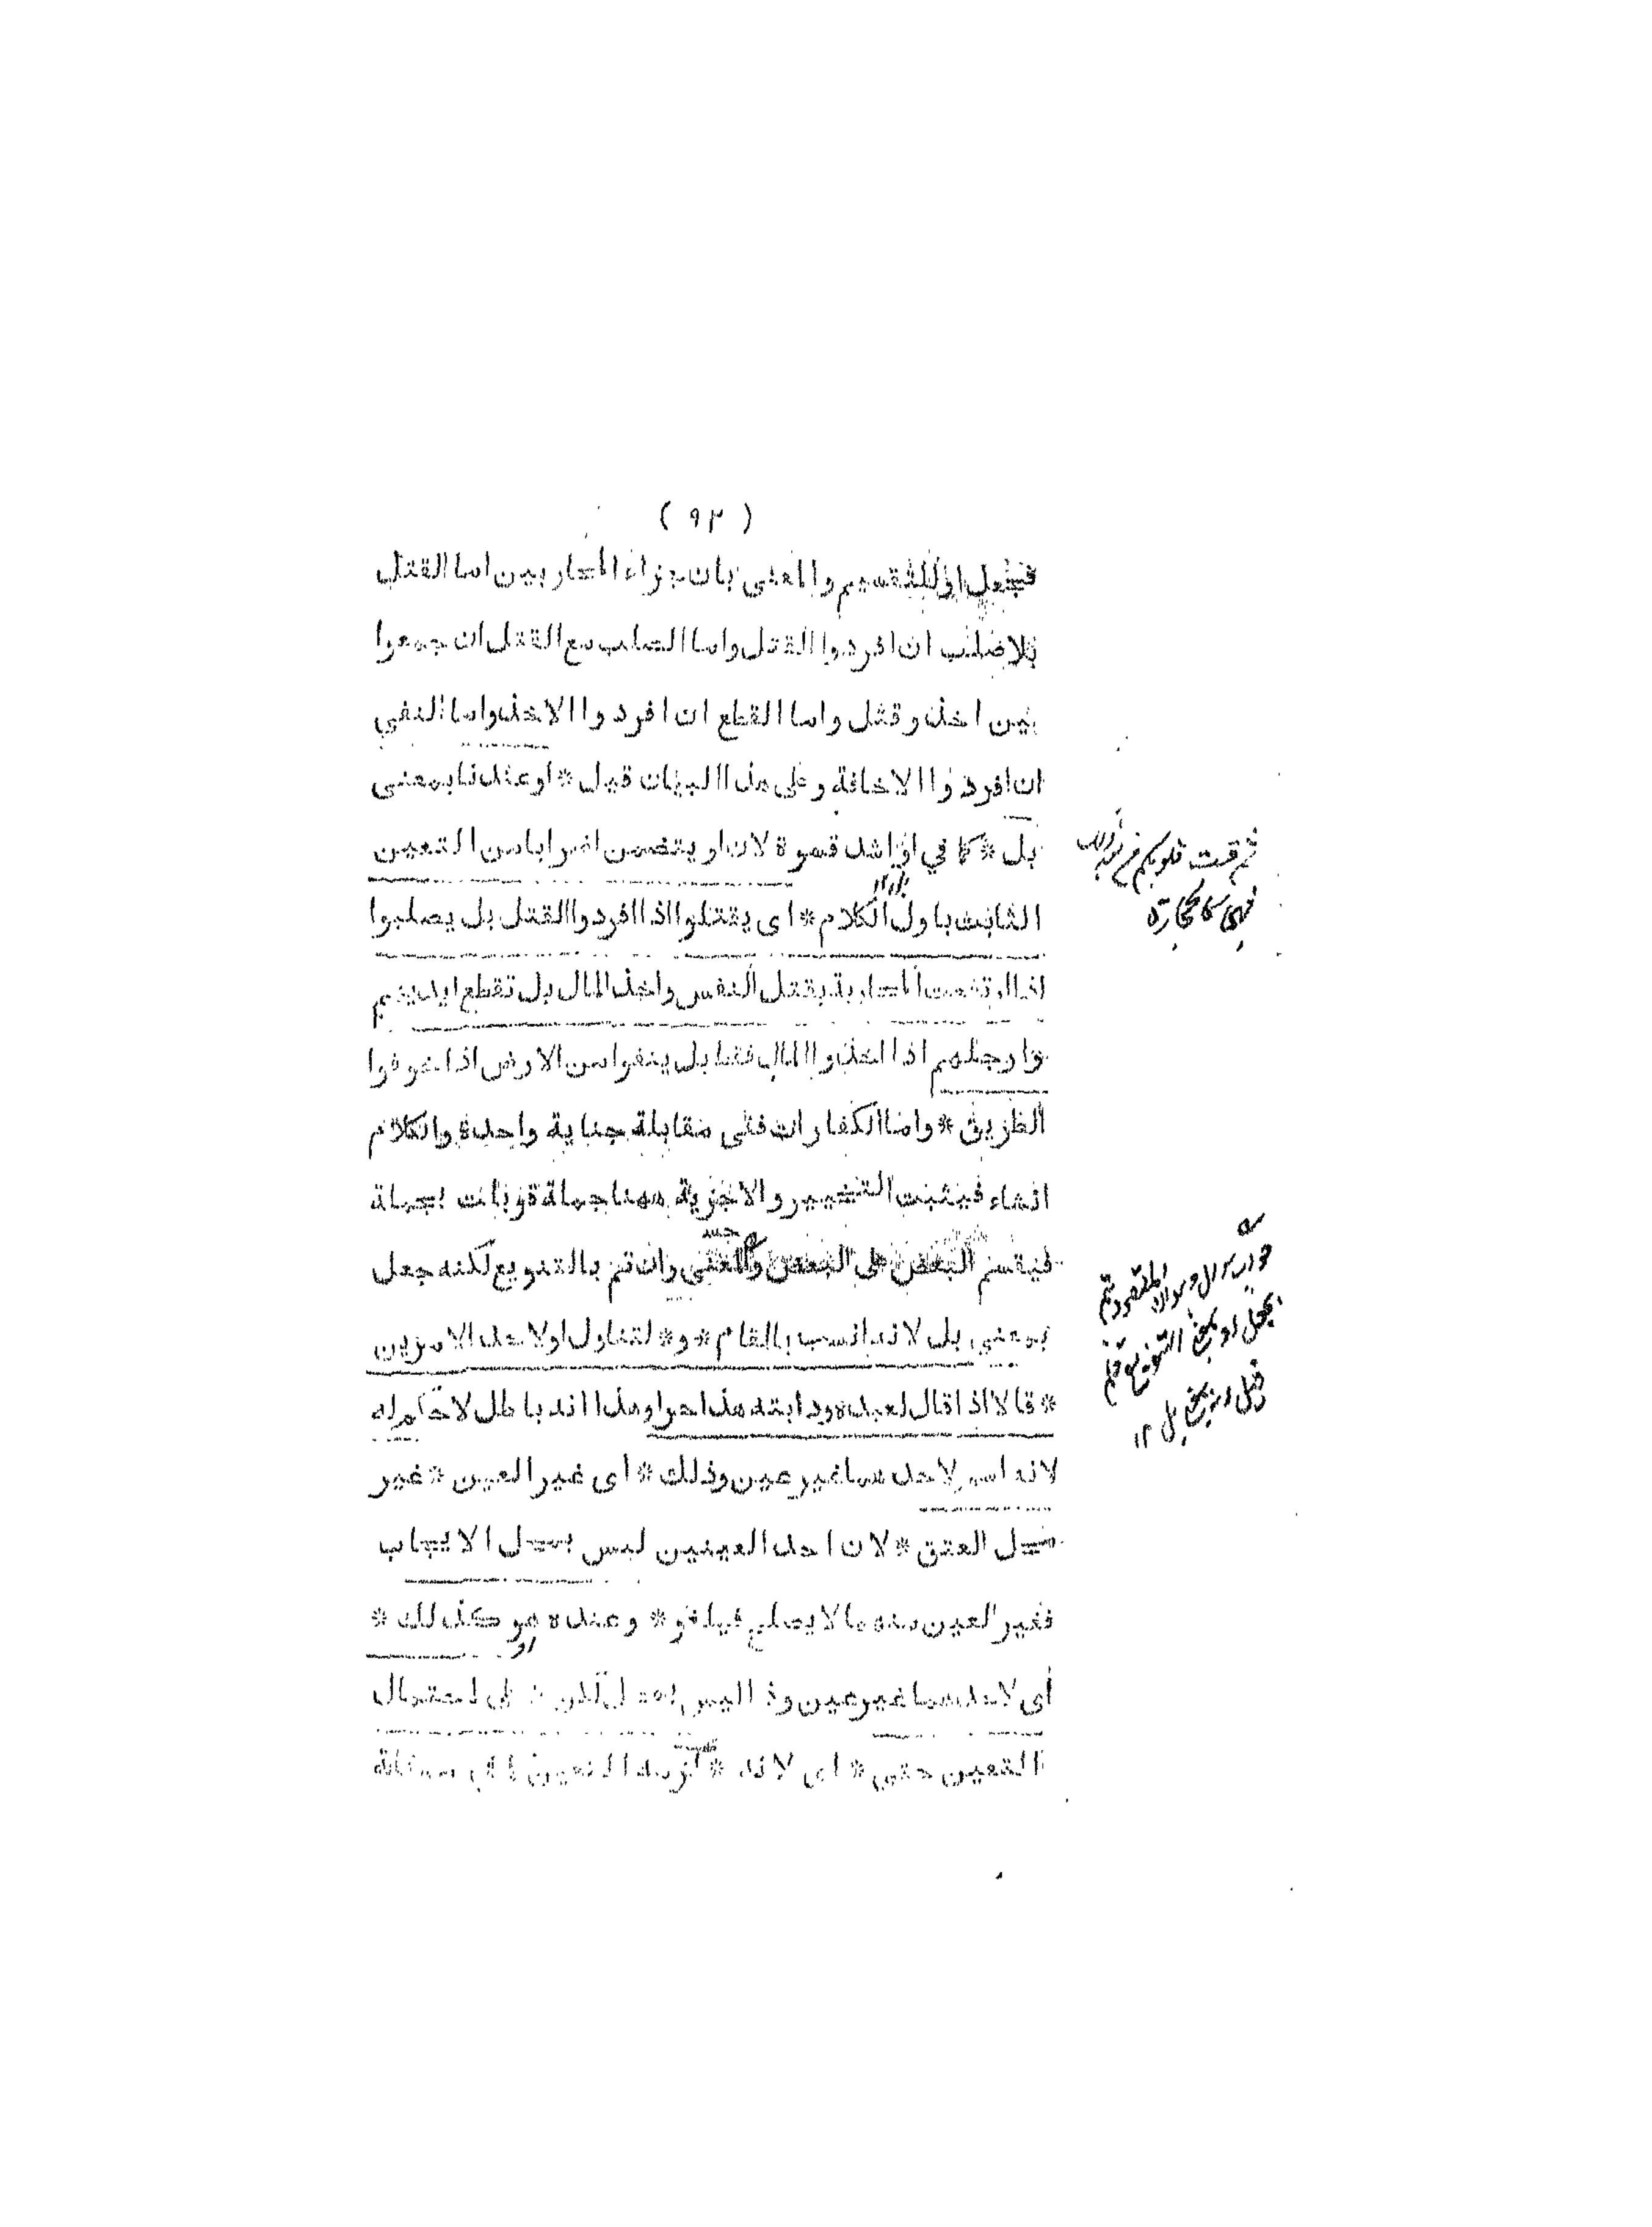 ( ٩٢ )
فيجعل او للتقسيم والمعنى بان جزاء المحاربين اما القتل
بلا صلب ان افردوا القتل واما الصلب مع القتل ان جمعوا
بين اخذ وقتل واما القطع ان افردوا الاخذ واما النفي
ان افردوا الاخافة وعلى هذا البيان قيل * او عندنا بمعنى
بل * كما في او اشد قسوة لان او يتضمن اضرابا من التعيين
الثابت باول الكلام * اى يقتلوا اذا افردوا القتل بل يصلبوا
اذا ارتفعت المحاربة بقتل النفس واخذ المال بل تقطع ايديهم
وارجلهم اذا اخذوا المال فقط بل ينفوا من الارض اذا خوفوا
الطريق * واما الكفارات ففى مقابلة جناية واحدة والكلام
انشاء فيثبت التخيير والاجزية ههنا جملة قوبلت بجملة
فيقسم البعض على البعض والمعنى وان تم بالتنويع لكنه جعل
بمعنى بل لانه انسب بالقام * و * لتناول او لاحد الامرين
* قالا اذا قال لعبده ودابته هذا حر او هذا انه باطل لا حكم له
لانه اسم لاحدهما غير عين وذلك * أى غير العين * غير
محل العتق * لان احد العينين ليس بمحل الايجاب
فغير العين منهما لا يصلح فيلغو * وعنده هو كذلك *
أى لاحدهما غير عين وذا ليس بمحل لكن على احتمال
التعيين حتى * اى لانه * لزمه التعيين كما فى مسئلة
ثم قست قلوبكم من بعد ذلك
فهي كالحجارة
جواب سوال وسوال المقصود تم
بجعل او بمعنى التنويع فلم
قيل انه بمعنى بل ١٢